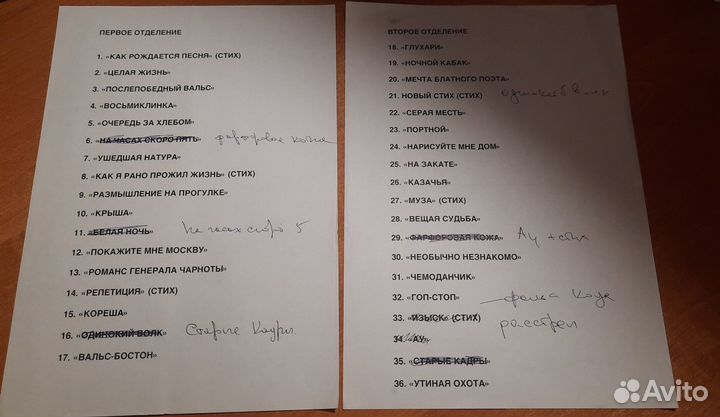 ПЕРВОЕ ОТДЕЛЕНИЕ
1. «КАК РОЖДАЕТСЯ ПЕСНЯ» (СТИХ)
2. «ЦЕЛАЯ ЖИЗНЬ»
3. «ПОСЛЕПОБЕДНЫЙ ВАЛЬС»
4. «ВОСЬМИКЛИНКА»
5. «ОЧЕРЕДЬ ЗА ХЛЕБОМ»
6. «НА ЧАСАХ СКОРО ПЯТЬ» фарфоровая кожа
7. «УШЕДШАЯ НАТУРА»
8. «КАК Я РАНО ПРОЖИЛ ЖИЗНЬ» (СТИХ)
9. «РАЗМЫШЛЕНИЕ НА ПРОГУЛКЕ»
10. «КРЫША»
11. «БЕЛАЯ НОЧЬ» На часах скоро 5
12. «ПОКАЖИТЕ МНЕ МОСКВУ»
13. «РОМАНС ГЕНЕРАЛА ЧАРНОТЫ»
14. «РЕПЕТИЦИЯ» (СТИХ)
15. «КОРЕША»
16. «ОДИНОКИЙ ВОЛК» Старые кадры
17. «ВАЛЬС-БОСТОН»
ВТОРОЕ ОТДЕЛЕНИЕ
18. «ГЛУХАРИ»
19. «НОЧНОЙ КАБАК»
20. «МЕЧТА БЛАТНОГО ПОЭТА»
21. НОВЫЙ СТИХ (СТИХ) одинокий волк
22. «СЕРАЯ МЕСТЬ»
23. «ПОРТНОЙ»
24. «НАРИСУЙТЕ МНЕ ДОМ»
25. «НА ЗАКАТЕ»
26. «КАЗАЧЬЯ»
27. «МУЗА» (СТИХ)
28. «ВЕЩАЯ СУДЬБА»
29. «ФАРФОРОВАЯ КОЖА» Ау + стих
30. «НЕОБЫЧНО НЕЗНАКОМО»
31. «ЧЕМОДАНЧИК»
32. «ГОП-СТОП»
33. «ИЗЫСК» (СТИХ) расстрел
34. «АУ»
35. «СТАРЫЕ КАДРЫ»
36. «УТИНАЯ ОХОТА»
Avito